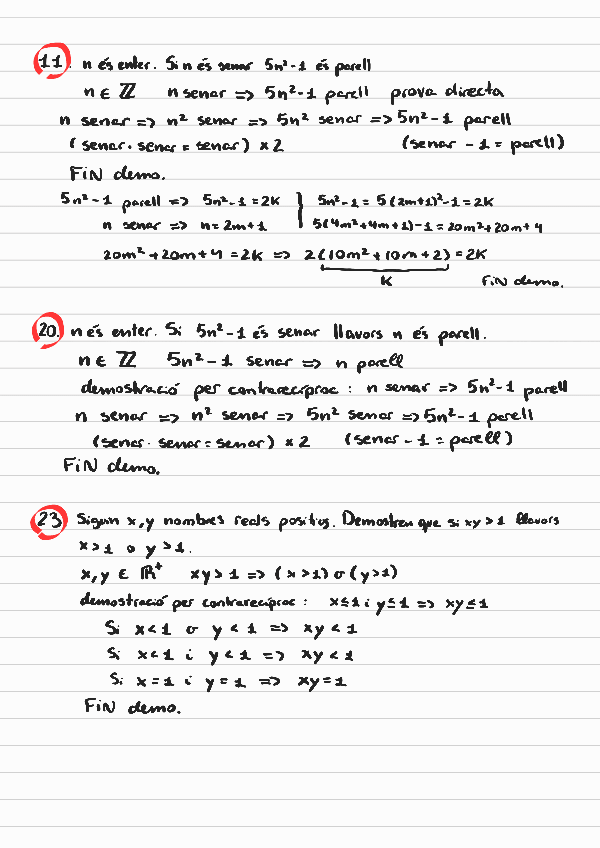 11. n és enter. Si n és senar 5n²-1 és parell
n ∈ ℤ n senar => 5n²-1 parell prova directa
n senar => n² senar => 5n² senar => 5n²-1 parell
(senar · senar = senar) × 2 (senar - 1 = parell)
FiN demo.
5n²-1 parell => 5n²-1 = 2K } 5n²-1 = 5(2m+1)²-1 = 2K
n senar => n = 2m+1 5(4m²+4m+1)-1 = 20m²+20m+4
20m²+20m+4 = 2K => 2(10m²+10m+2) = 2K
K FiN demo.
20. n és enter. Si 5n²-1 és senar llavors n és parell.
n ∈ ℤ 5n²-1 senar => n parell
demostració per contrarecíproc : n senar => 5n²-1 parell
n senar => n² senar => 5n² senar => 5n²-1 parell
(senar · senar = senar) × 2 (senar - 1 = parell)
FiN demo.
23 Siguin x,y nombres reals positius. Demostreu que si xy > 1 llavors
x > 1 o y > 1.
x,y ∈ ℝ⁺ xy > 1 => (x > 1) o (y > 1)
demostració per contrarecíproc : x ≤ 1 i y ≤ 1 => xy ≤ 1
Si x < 1 o y < 1 => xy < 1
Si x < 1 i y < 1 => xy < 1
Si x = 1 i y = 1 => xy = 1
FiN demo.